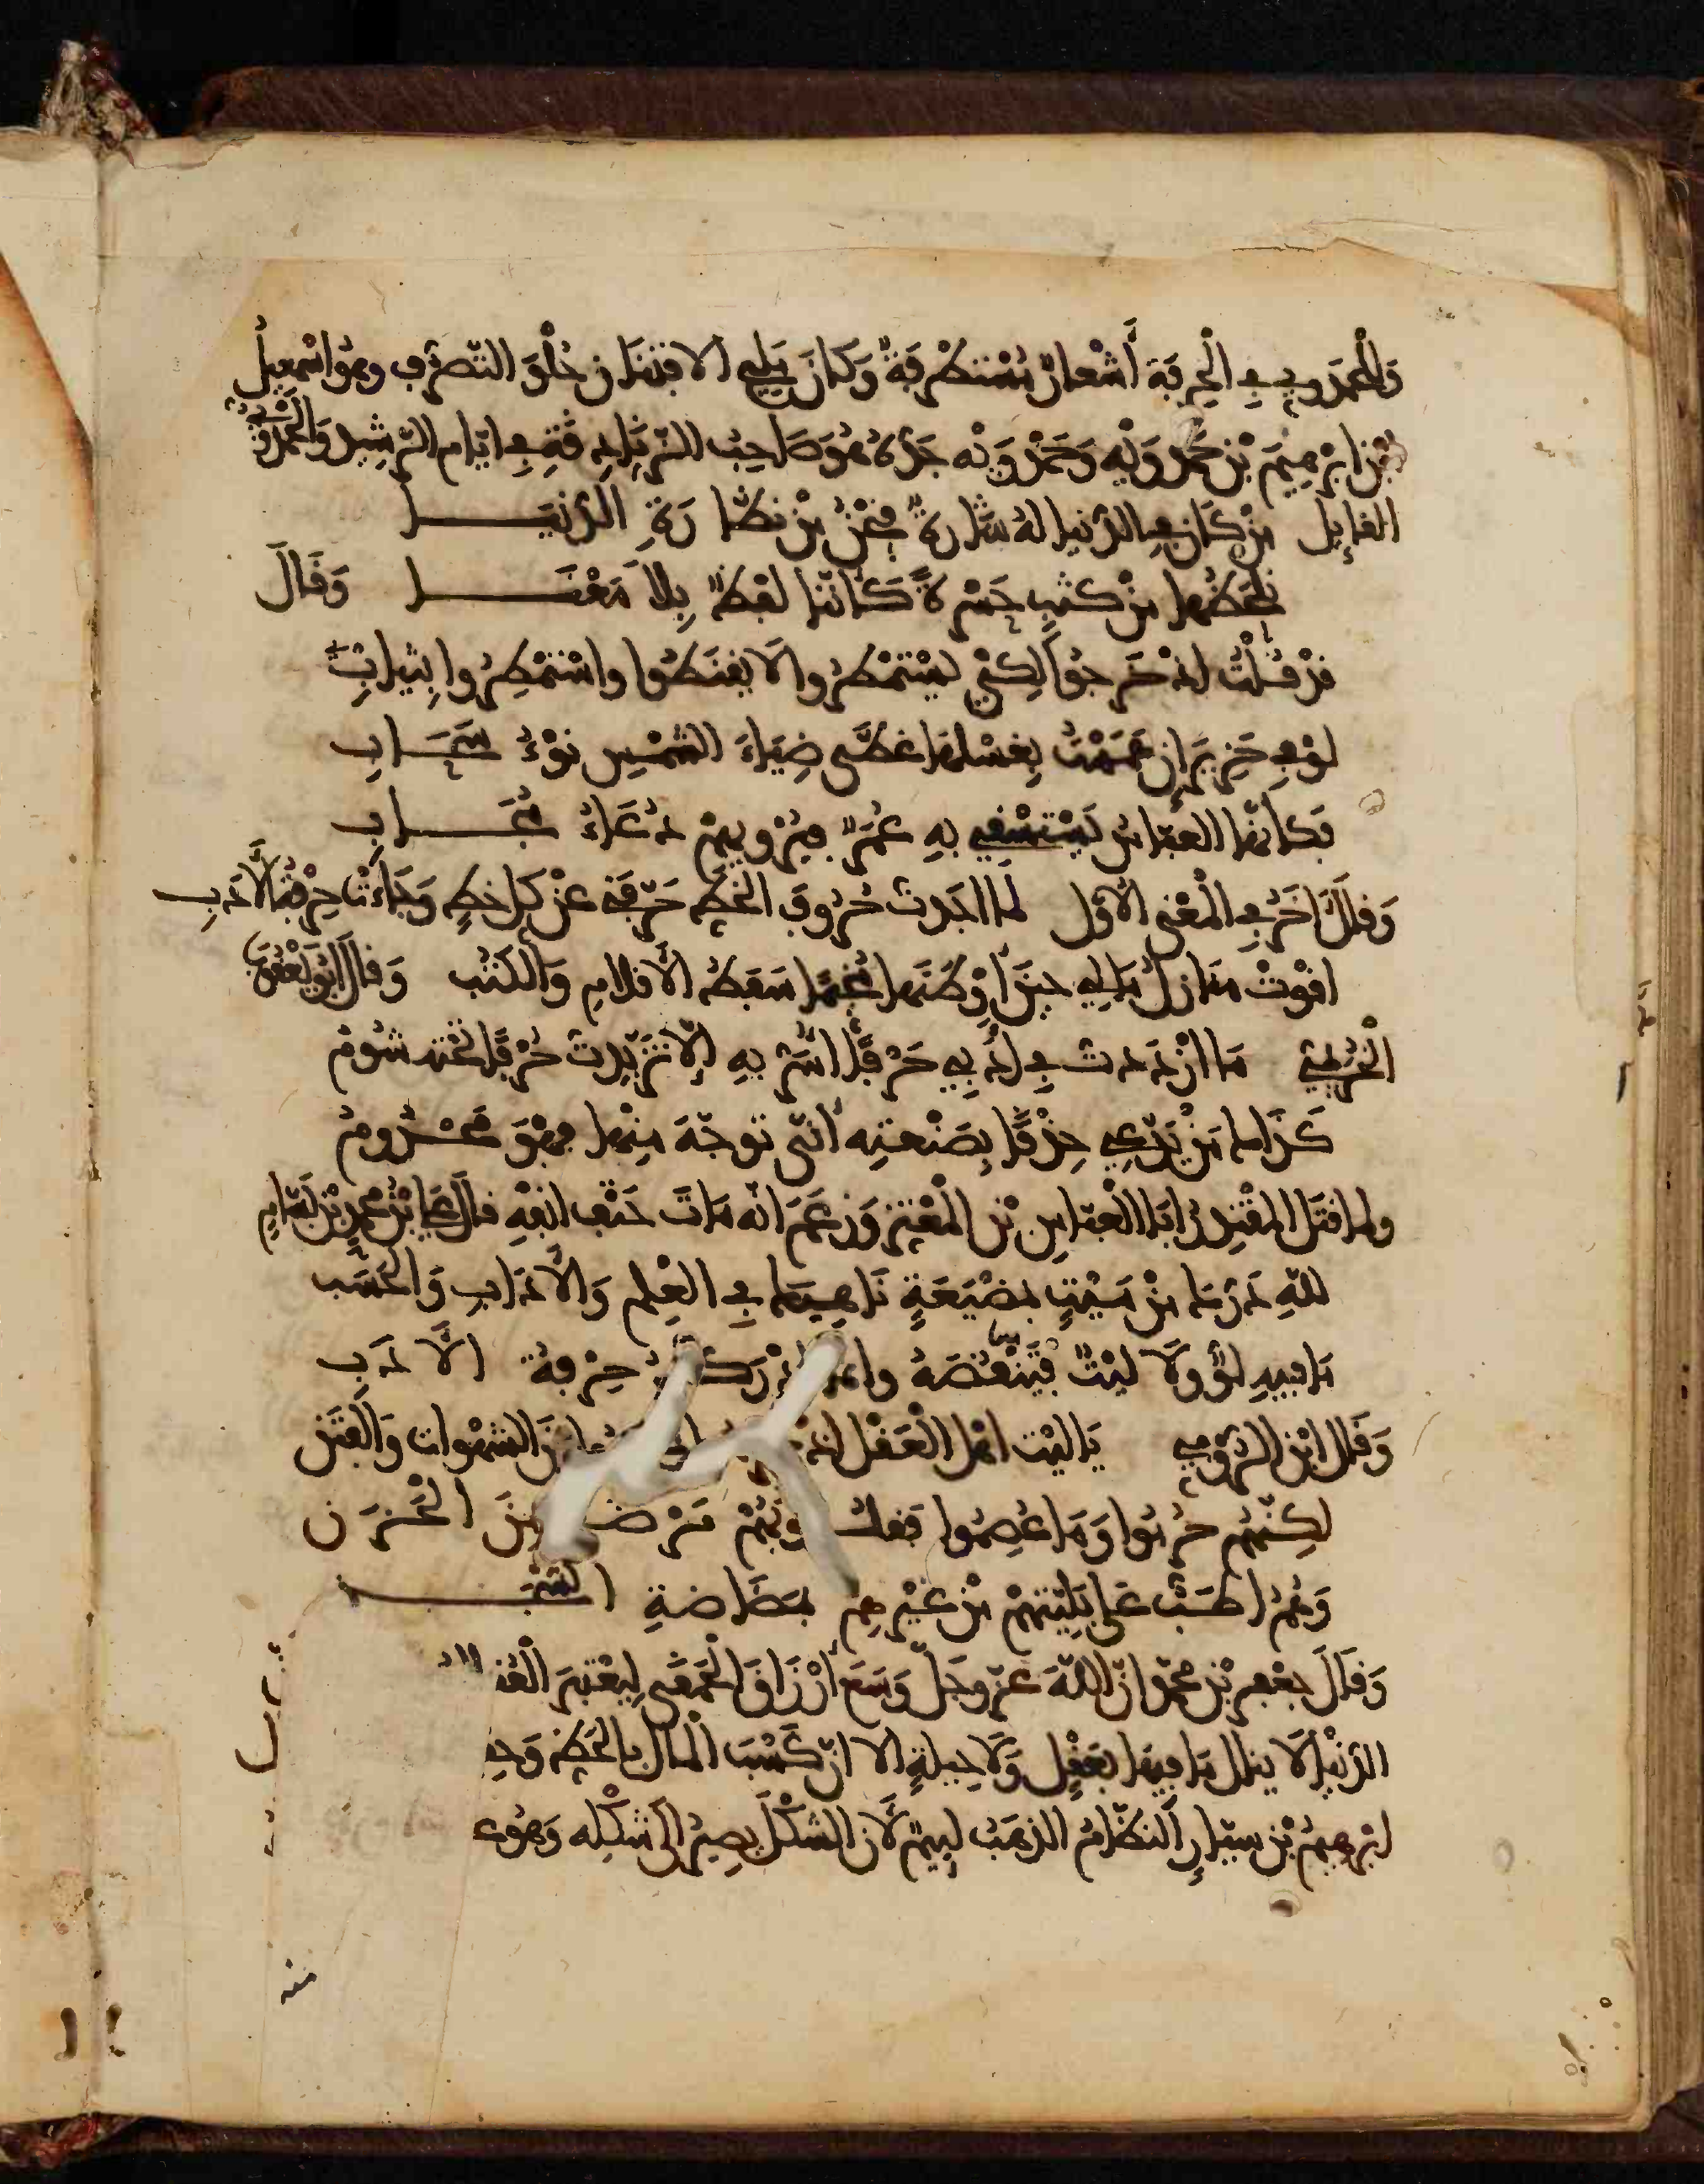 وَلِلْحَمْدَوِيِّ فِي الْحِرْفَةِ أَشْعَارٌ مُسْتَطْرَفَةٌ وَكَانَ مَلِيحَ الافْتِنَانِ حُلْوَ التَّصَرُّفِ وهُوَ اسْمَعِيلُ
بْنُ ابْرَهِيمَ بْنِ حَمْدَوَيْهِ وَحَمْدَوَيْه جَدُّهُ هُوَ صَاحِبُ الزَّنَادِقَةِ فِي ايّامِ الرَّشِيدِ وَالْحَمْدَوِيُّ
القايِل مَنْ كَانَ فِي الدُّنْيَا لهُ شَارَةٌ فَنَحْنُ مِنْ نَظَّارَةِ الدُّنْيَـــا
نَلْحَظُهَا مِنْ كَثَبٍ حَسْرَةً كَانَّنَا لَفْظٌ بِلَا مَعْنَـــا وَقَالَ
قَدْ قُلْتُ اذْ خَرَجُوا لِكَيْ يَسْتَمْطِرُوا لَا يَقْنَطُوا واسْتَمْطِرُوا بِثِيَابِي
لَوْ فِي حَزِيرَانٍ هَمَمْتُ بِغَسْلِهَا غَطَّى ضِيَاءَ الشَّمْسِ نَوْءُ سَحَـــابِ
فَكَانَّهَا العَبَّاسُ يَسْتَسْقِي بِهِ عُمَرٌ فَيُرْوِيهِمْ دُعَاءُ مُجَـــابِ
وَقَالَ اخَرُ فِي الْمَعْنَى الاوَّل لَمَّا اجَدْتُ حُرُوفَ الخَطِّ حَرَّفَنِي عَنْ كُلِّ حَظٍّ وَجَاءَتْ حِرْفَةُ الأدَبِ
اقْوَتْ مَنَازِلُ مَالِي حِينَ اوْطَنَهَا سَفَطُ الأقْلَامِ وَالْكُتُبِ وَقَالَ ابُو يَعْقُوبَ
الْخُرَيْمِيُّ مَا ازْدَدْتُ فِي أَدَبِي حَرْفًا أُسَرُّ بِهِ إلَّا تَزَيَّدْتُ حُرْفًا تَحْتَه شُومُ
كَذَا مَنْ يَدَّعِي حِذْقًا بِصَنْعَتِهِ أنَّى تَوَجَّهَ مِنْهَا فَهْوَ مَحْـــرُومُ
ولمَّا قَتَلَ المُقْتَدِرُ أبَا الْعَبَّاسِ بْنَ الْمُعْتَزِّ وَزَعَمَ انَّه مَاتَ حَتْفَ انْفِهِ قالَ عَلِيُّ بْنُ مُحَمَّدِ بْنِ بَسَّامِ
لِلّهِ دَرُّكَ مِنْ مَيْتٍ بمَضْيَعَةٍ نَاهِيكَ فِي العِلْمِ وَالآدَابِ وَالْحَسَبِ
مَا فِيهِ لَوٌّ وَلَا لَيْتٌ فَتَنْقُصَهُ وانَّمَا ادْرَكَتْهُ حِرْفَةُ الأدَبِ
وَقَالَ ابْنُ الرُّومِيِّ يَا لَيْتَ اهْلَ الْعَقْلِ اذْ مِنَ الشَّهَوَاتِ وَالْفِتَنِ
لَكِنَّهُمْ حُرِمُوا وَمَا عُصِمُوا فَقُلُوبُهُمْ مَرْضَى مِنَ الْحَزَنِ
وَهُمُ اطَبُّ عَلَى بَلِيَّتِهِمْ مِنْ غَيْرِهِمْ بمَضَاضَةِ الشَّجَـــ
وَقَالَ جَعْفَرُ بْنُ مُحَمَّدٍ انَّ اللّهَ عَزَّ وَجَلَّ وَسَّعَ أرْزَاقَ الْحَمْقَى لِيَعْتَبِرَ الْعُقَلَاءُ
الدُّنْيَا لَا يُنالُ مَا فِيهَا بِعَقْلٍ وَلَا حِيلَةٍ الا انَّ كَسْبَ الْمَالِ بِالْحَظِّ وَحِ
ابْرَهِيمُ بْنُ سَيَّارٍ النَّظَّامُ الذَّهَبُ لَئِيمٌ لأَنَّ الشَّكْلَ يَصِيرُ الَى شَكْلِه وَهُوَ عِ
منه